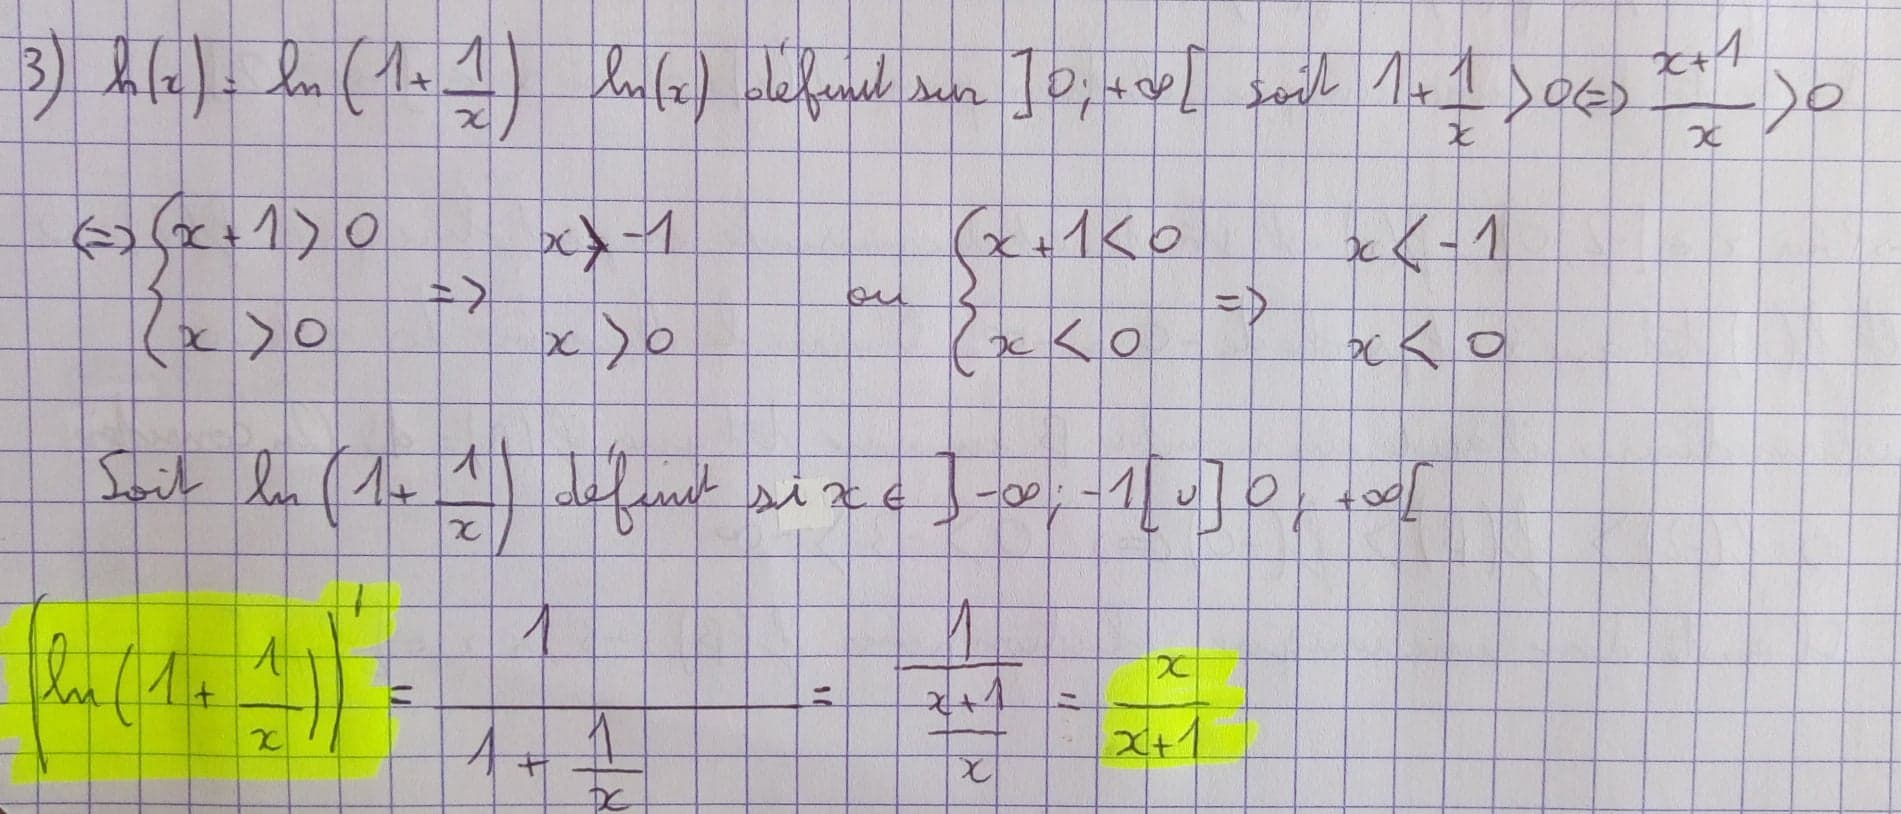 3) h(x) = ln(1+1/x) ln(x) définit sur ]0;+∞[ soit 1+1/x>0⇔(x+1)/x>0
⇔{x+1>0 => x>-1 ou {x+1<0 => x<-1
{x>0 x>0 {x<0 x<0
Soit ln(1+1/x) définit si x∈]-∞;-1[∪]0;+∞[
(ln(1+1/x))' = 1/(1+1/x) = 1/((x+1)/x) = x/(x+1)